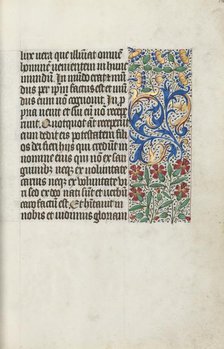 lux vera que illuīat omnē
hominē venientem in hunc
mundū. In mūdo erat et mū
dus per ipm̄ factus est et mun
dus eum nō cognouit. In p̱
pria venit et sui eū nō recepe
runt. Quotquot aūt receperūt
eum dedit eis potestatem fili
os dei fieri hiis qui credūt in
nomine eius qui nō ex san
guinibꝫ neqꝫ ex voluntate
carnis neqꝫ ex voluntate vi
ri sed ex deo nati sūt et verbū
caro factū est. Et hītauit in
nobis et vidimus gloriam